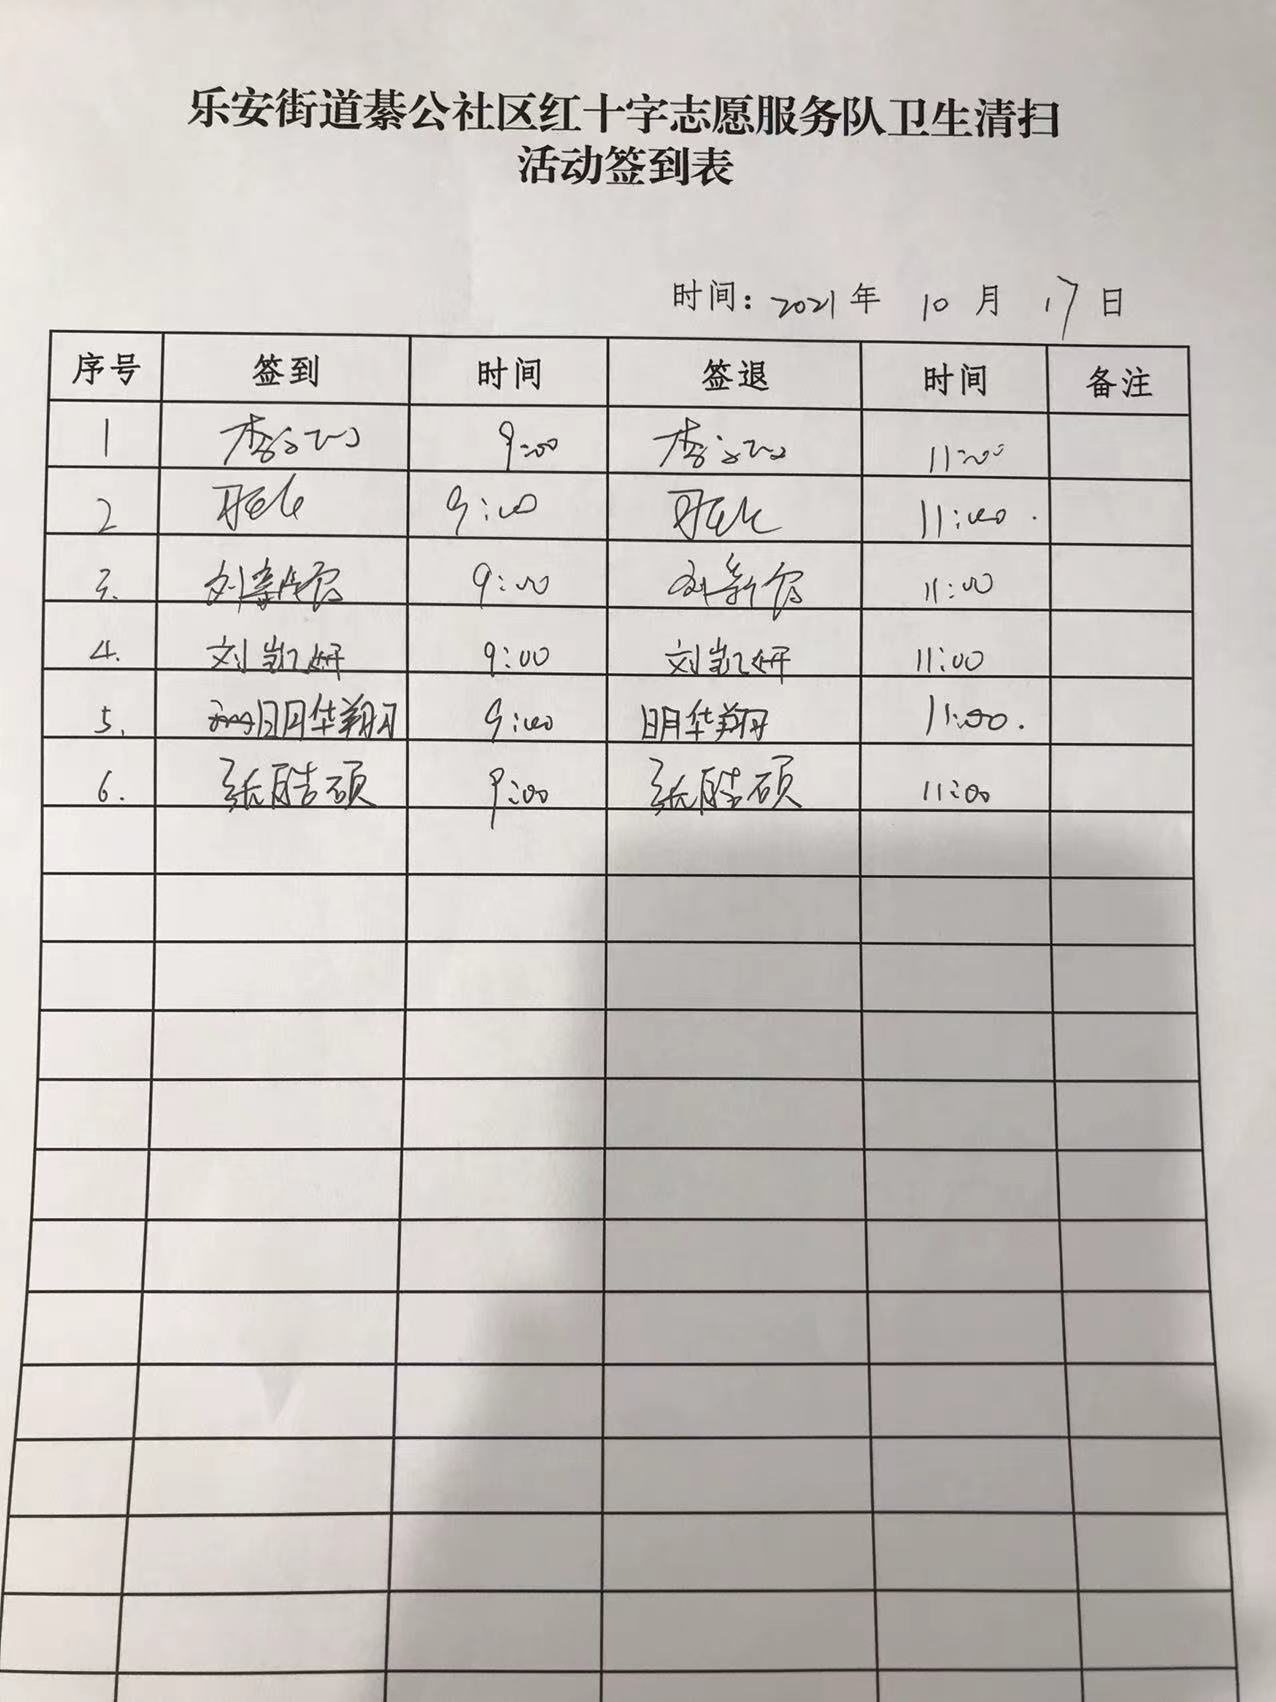 乐安街道綦公社区红十字志愿服务队卫生清扫
活动签到表
时间：2021年 10月 17日
序号 签到 时间 签退 时间 备注
1 李 9:00 李 11:00
2 9:00 11:00.
3. 刘 9:00 刘 11:00
4. 刘凯妍 9:00 刘凯妍 11:00
5. 明华翔 9:00 明华翔 11:00.
6. 张皓硕 9:00 张皓硕 11:00